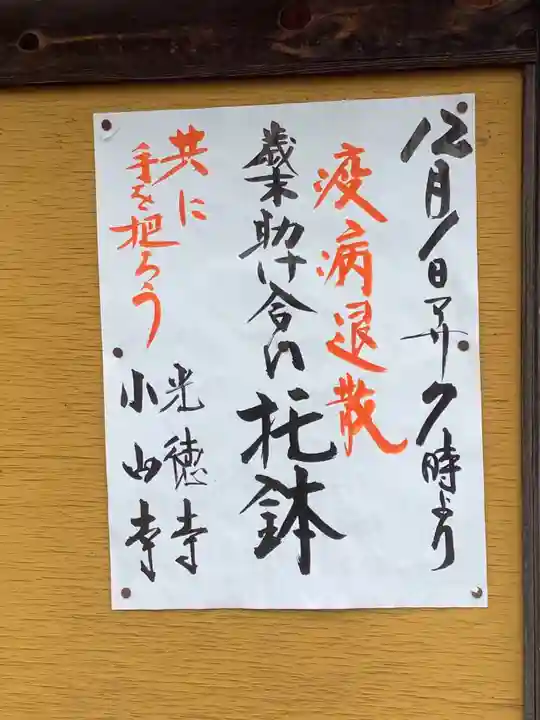 12月1日アサ9時より
疫病退散
歳末助け合い托鉢
共に
手を把ろう
光徳寺
小山寺